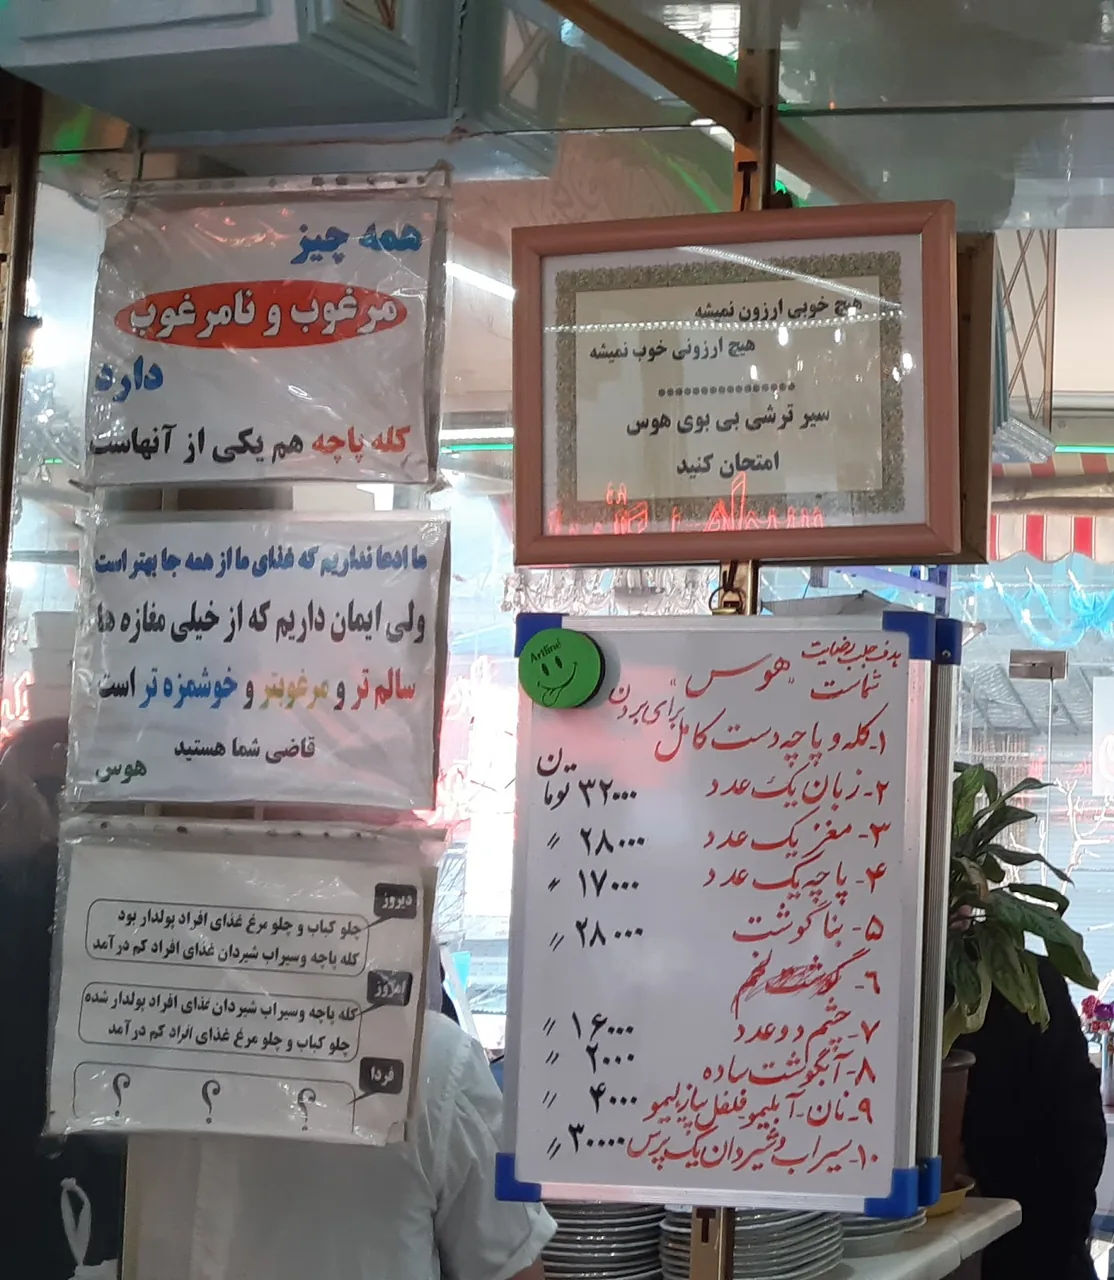 همه چیز
مرغوب و نامرغوب
دارد
کله پاچه هم یکی از آنهاست
ما ادعا نداریم که غذای ما از همه جا بهتر است
ولی ایمان داریم که از خیلی مغازه ها
سالم تر و مرغوبتر و خوشمزه تر است
قاضی شما هستید
هوس
دیروز
چلو کباب و چلو مرغ غذای افراد پولدار بود
کله پاچه وسیراب شیردان غذای افراد کم درآمد
امروز
کله پاچه وسیراب شیردان غذای افراد پولدار شده
چلو کباب و چلو مرغ غذای افراد کم درآمد
فردا
؟ ؟ ؟
هیچ خوبی ارزون نمیشه
هیچ ارزونی خوب نمیشه
...............
سیر ترشی بی بوی هوس
امتحان کنید
Artline
هدف جلب رضایت
شماست "هوس"
برای بردن
۱- کله و پاچه دست کامل
۲- زبان یک عدد ۳۲۰۰۰ تومان
۳- مغز یک عدد ۲۸۰۰۰ //
۴- پاچه یک عدد ۱۷۰۰۰ //
۵- بناگوشت ۲۸۰۰۰ //
۶- گوشت لخم
۷- چشم دو عدد ۱۶۰۰۰ //
۸- آبگوشت ساده ۲۰۰۰ //
۹- نان - آبلیمو - فلفل پیاز، لیمو ۴۰۰۰ //
۱۰- سیراب و شیردان یک پرس ۳۰۰۰۰ //